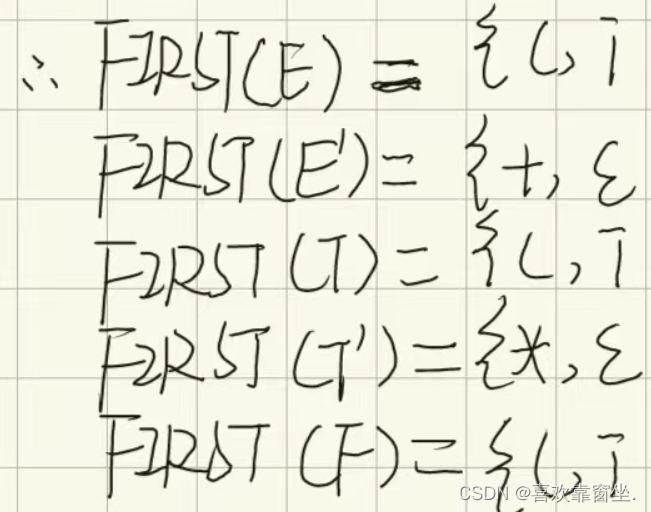 ∴ FIRST(E) = {(, i
FIRST(E') = {+, ε
FIRST(T) = {(, i
FIRST(T') = {*, ε
FIRST(F) = {(, i
CSDN @喜欢靠窗坐.